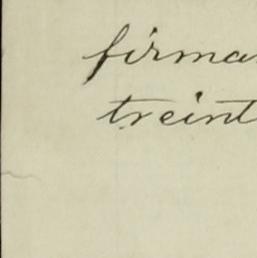 firma
treint